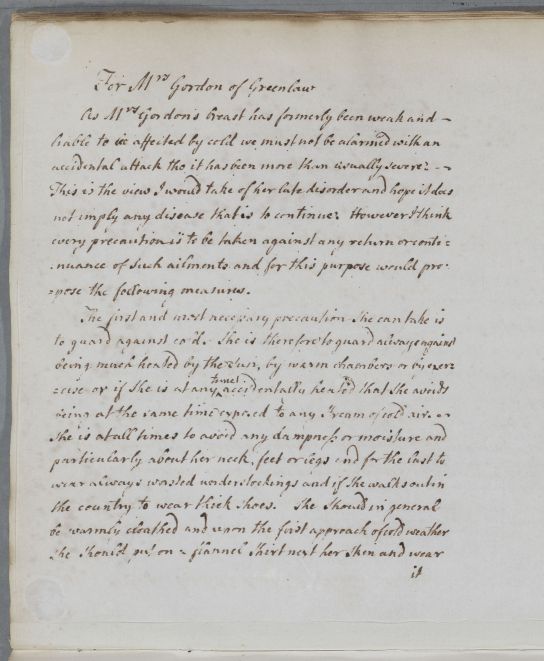 For Mrs Gordon of Greenlaw
As Mrs Gordon's breast has formerly been weak and -
liable to be affected by cold we must not be alarmed with an
accidental attack tho it has been more than usually severe: - -
This is the view I would take of her late disorder and hope it does
not imply any disease that is to continue: However I think
every precaution is to be taken against any return or conti=
-nuance of such ailments and for this purpose would pro-
=pose the following measures.
The first and most necessary precaution she can take is
to guard against cold. She is therefore to guard always against
being much heated by the Sun, by warm chambers or by exer=
=cise or if she is at any time accidentally heated that she avoids
being at the same time exposed to any Stream of cold air. -
She is at all times to avoid any dampness or moisture and
particularly about her neck, feet or legs and for the last to
wear always worsted understockings and if she walks out in
the country to wear thick shoes. She should in general
be warmly cloathed and upon the first approach of cold weather
she should put on a flannel Shirt next her Skin and wear
it